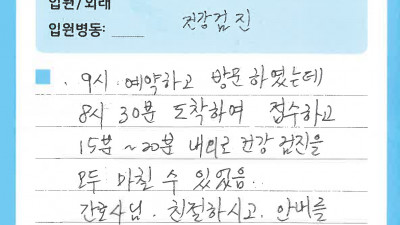 입원/외래
입원병동: 건강검진
· 9시 예약하고 방문하였는데
8시 30분 도착하여 접수하고
15분~20분 내외로 건강검진을
모두 마칠 수 있었음.
간호사님. 친절하시고. 안내를